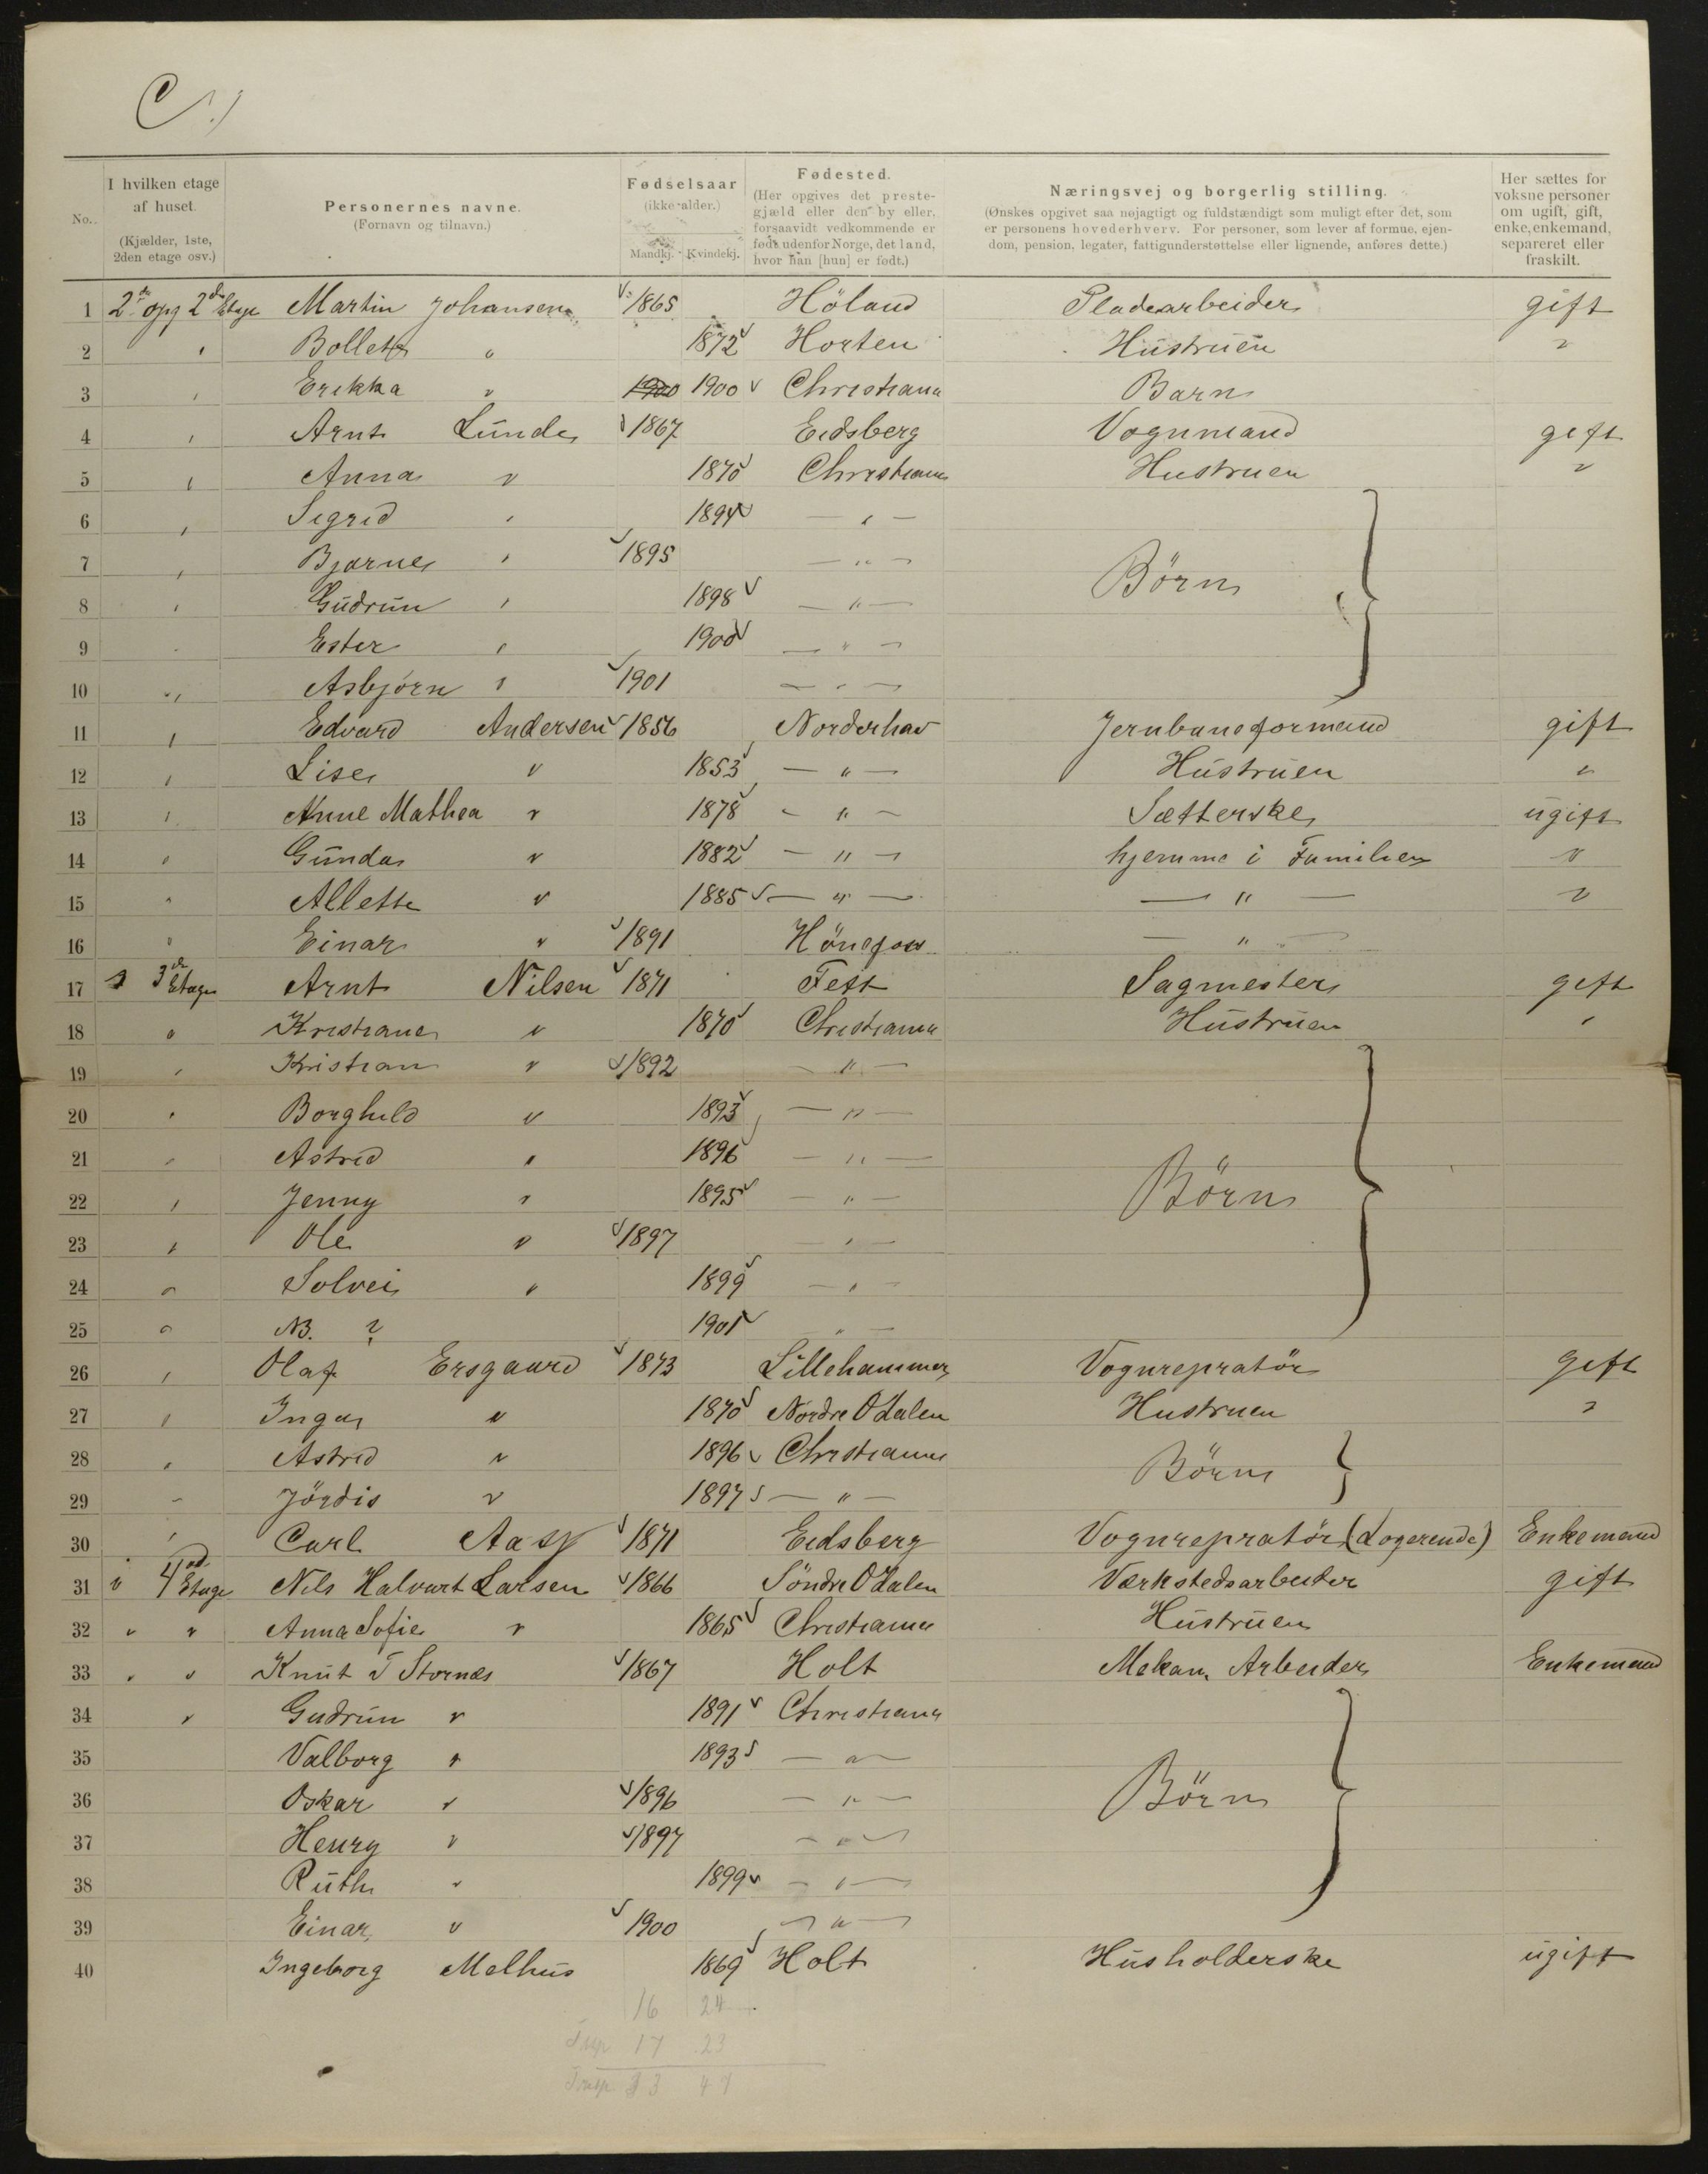 C.)
No.
I hvilken etage af huset. (Kjælder, 1ste, 2den etage osv.)
Personernes navne. (Fornavn og tilnavn.)
Fødselsaar (ikke alder.) Mandkj. Kvindekj.
Fødested. (Her opgives det prestegjæld eller den by eller, forsaavidt vedkommende er født udenfor Norge, det land, hvor han [hun] er født.)
Næringsvej og borgerlig stilling. (Ønskes opgivet saa nøjagtigt og fuldstændigt som muligt efter det, som er personens hovederhverv. For personer, som lever af formue, ejendom, pension, legater, fattigunderstøttelse eller lignende, anføres dette.)
Her sættes for voksne personer om ugift, gift, enke, enkemand, separeret eller fraskilt.
1 2den opg 2den Etage Martin Johansen 1865 Höland Pladearbeider gift
2 " Bollette " 1872 Horten Hustruen "
3 " Erikka " 1900 1900 Christiania Barn
4 " Arnt Lunde 1867 Eidsberg Vognmand gift
5 " Anna " 1870 Christiania Hustruen "
6 " Sigrid " 1894 — " —
7 " Bjarne " 1895 — " — Börn
8 " Gudrun " 1898 — " —
9 " Ester " 1900 — " —
10 " Asbjörn " 1901 — " —
11 " Edvard Andersen 1856 Norderhov Jernbaneformand gift
12 " Lise " 1853 — " — Hustruen "
13 " Anne Mathea " 1878 — " — Sætterske ugift
14 " Gunda " 1882 — " — hjemme i Familien "
15 " Allette " 1885 — " — — " — "
16 " Einar " 1891 Hönefos — " —
17 " 3de Etage Arnt Nilsen 1871 Fett Sagmester gift
18 " Kristiane " 1870 Christiania Hustruen "
19 " Kristian " 1892 — " —
20 " Borghild " 1893 — " —
21 " Astrid " 1896 — " —
22 " Jenny " 1895 — " — Börn
23 " Ole " 1897 — " —
24 " Solvei " 1899 — " —
25 " NB. ? 1901 — " —
26 " Olaf Ersgaard 1873 Lillehammer Vognrepratör gift
27 " Inga " 1870 Nordre Odalen Hustruen "
28 " Astrid " 1896 Christiania Börn
29 " Jördis " 1897 — " —
30 " Carl Aas 1871 Eidsberg Vognrepratör (Logerende) Enkemand
31 " 4de Etage Nils Halvart Larsen 1866 Söndre Odalen Værkstedsarbeider gift
32 " " Anna Sofie " 1865 Christiania Hustruen
33 " " Knut T Stornæs 1867 Holt Mekan. Arbeider Enkemand
34 " Gudrun " 1891 Christiania
35 Valborg " 1893 — " —
36 Oskar " 1896 — " — Börn
37 Henry " 1897 — " —
38 Ruth " 1899 — " —
39 Einar " 1900 — " —
40 Ingeborg Melhus 1869 Holt Husholderske ugift
16 24
17 23
47